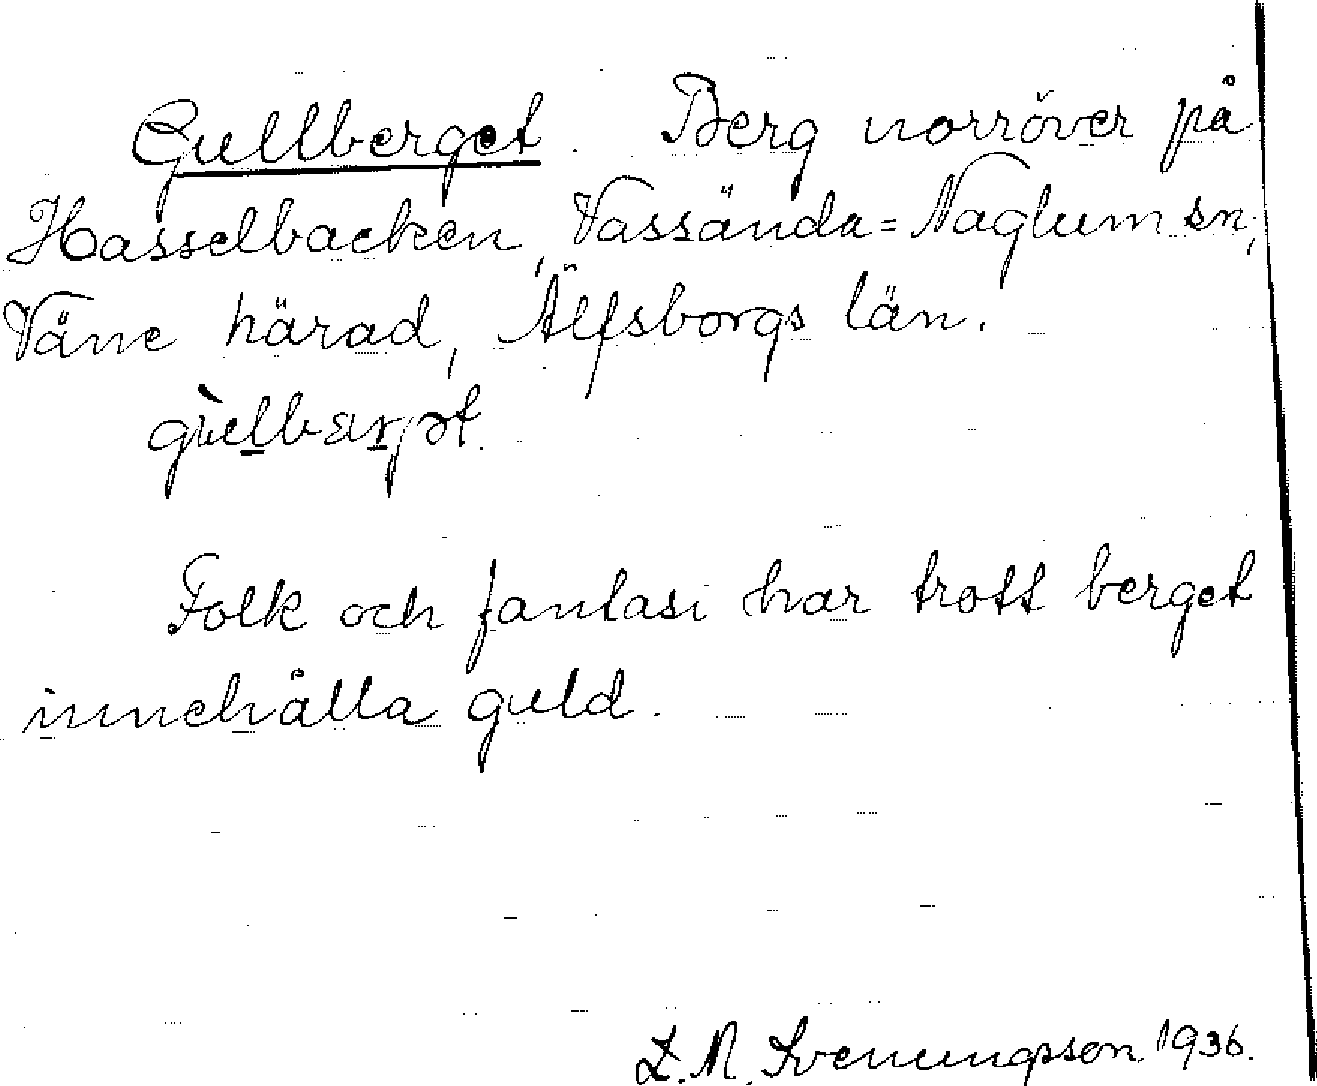 Gullberget. Berg norröver på
Hasselbacken, Vassända=Naglum sn,
Väne härad, Älfsborgs län.
Folk och fantasi har trott berget
innehålla guld.
Svenungsson 1936.